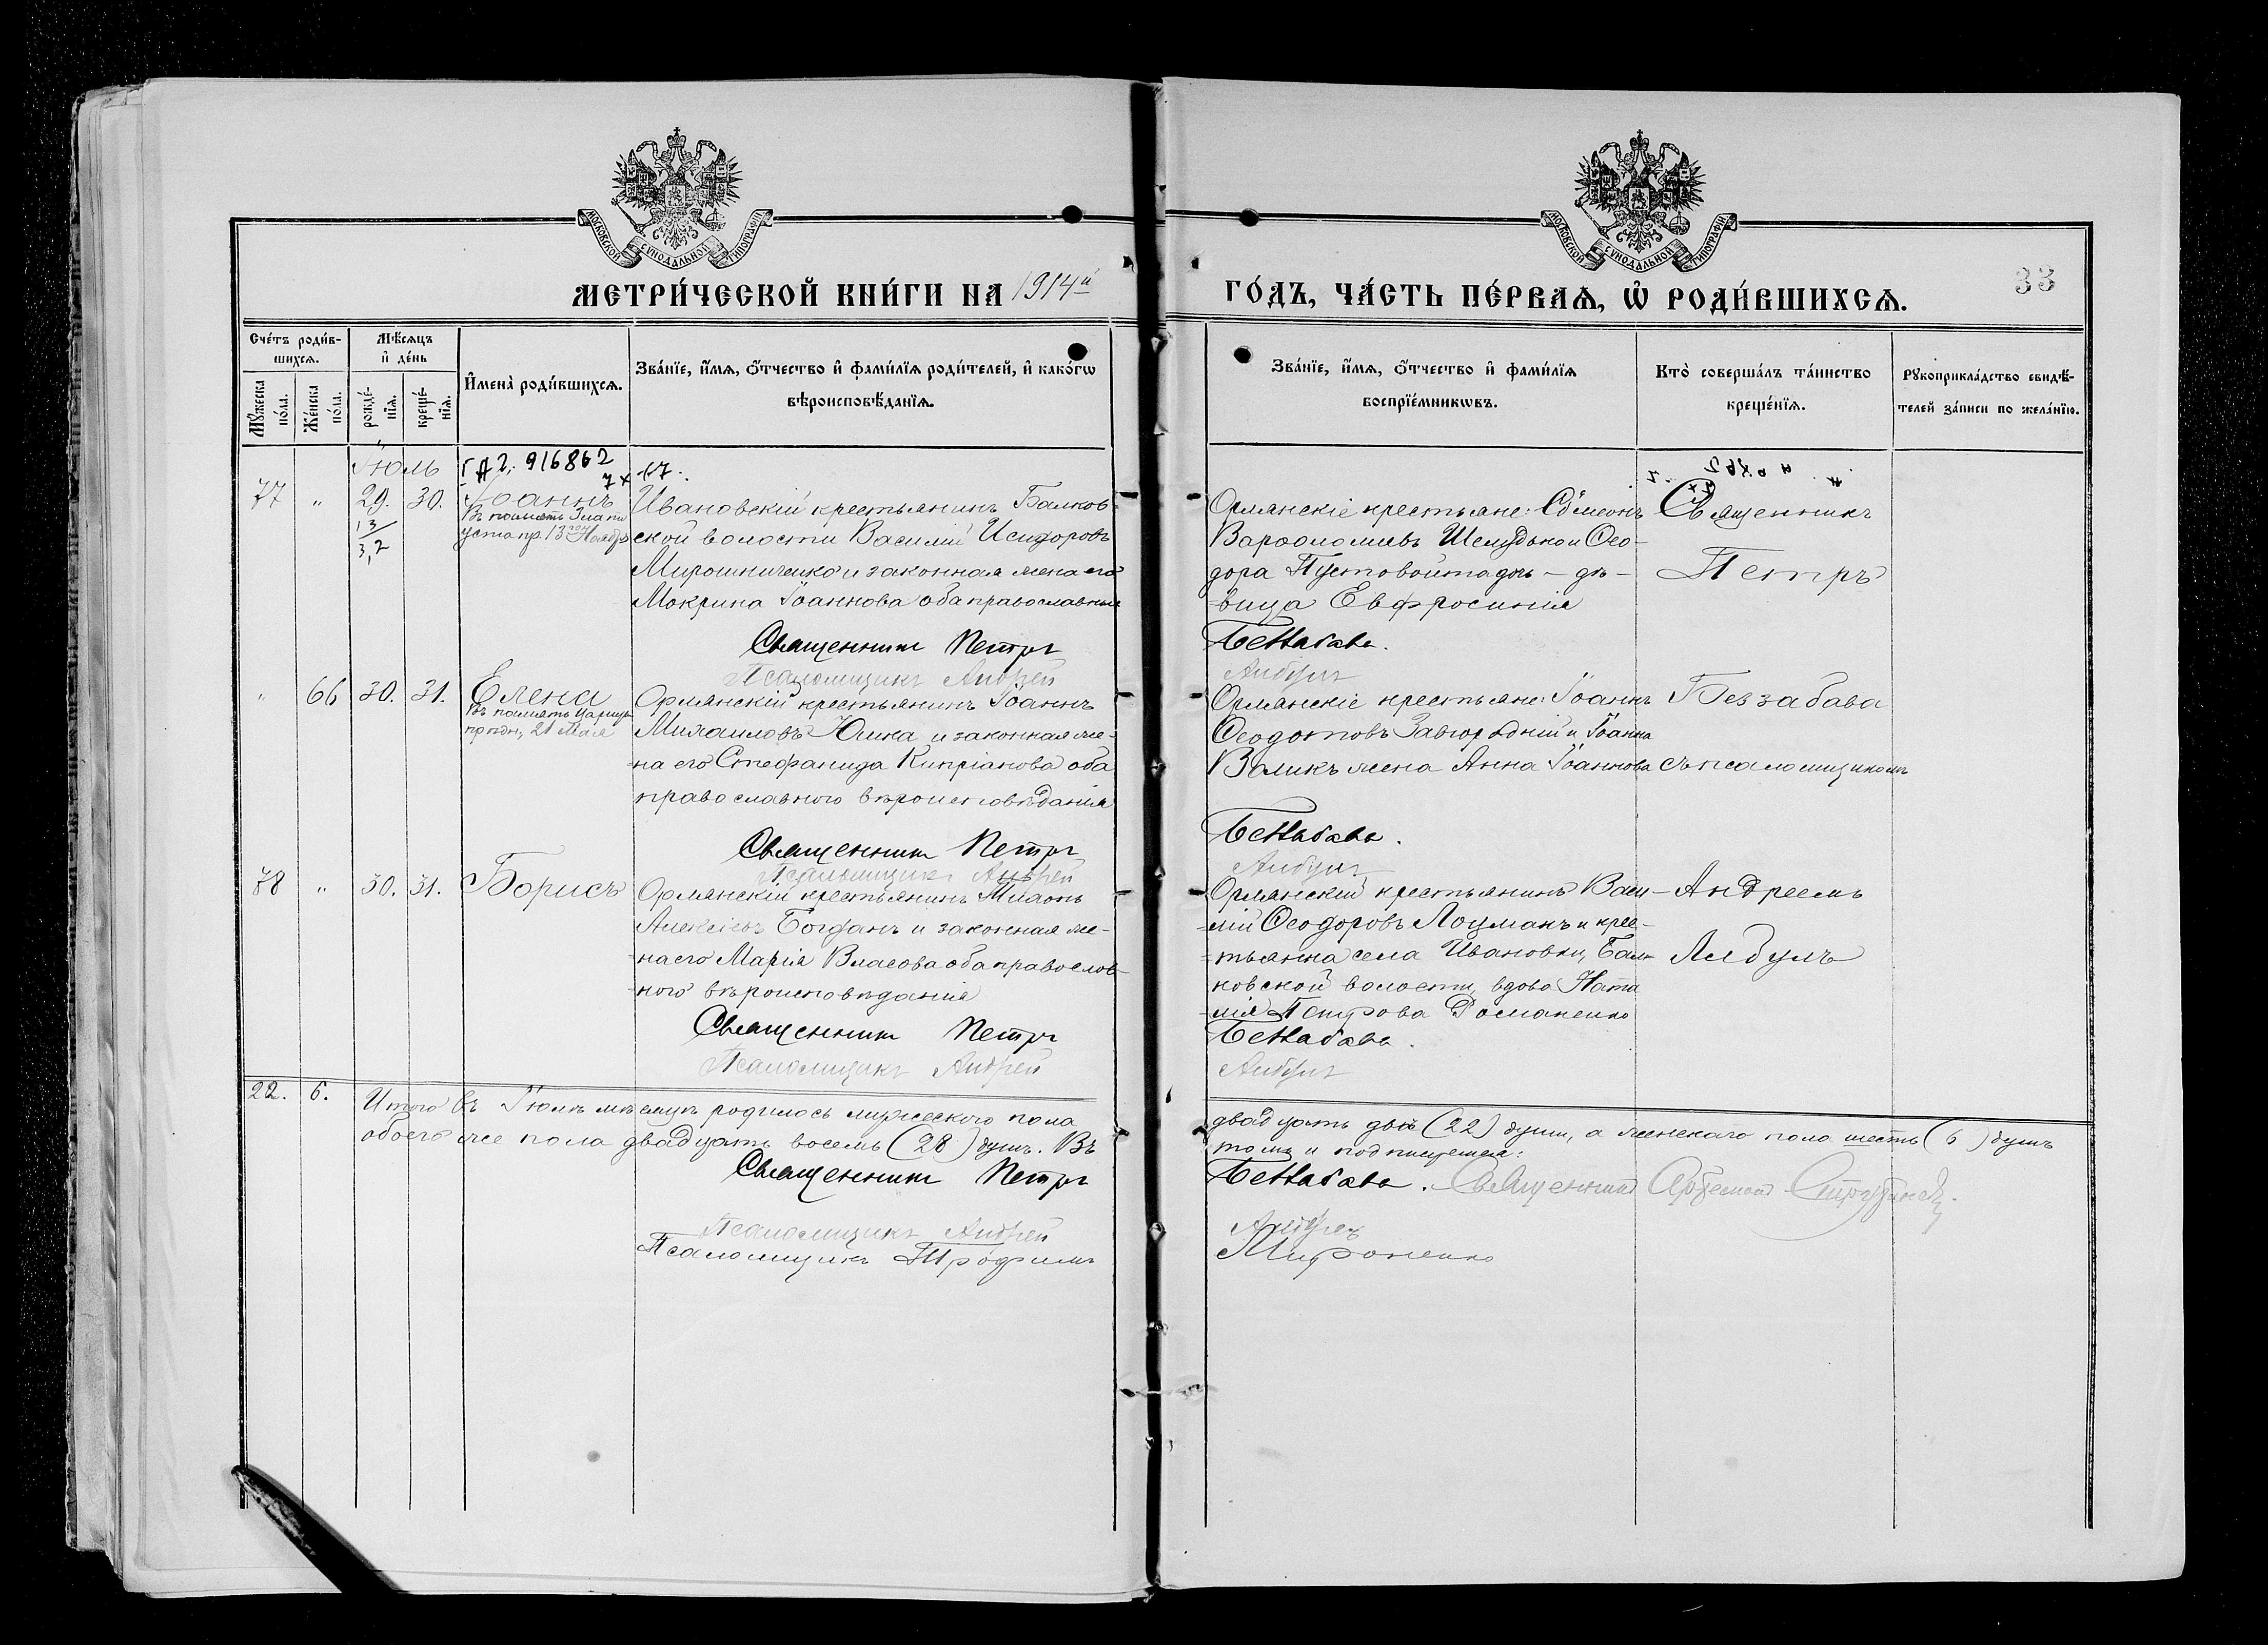 МОСКОВСКОЙ СѴНОДАЛЬНОЙ ТИПОГРАФІИ
МОСКОВСКОЙ СѴНОДАЛЬНОЙ ТИПОГРАФІИ
МЕТРИ́ЧЕСКОЙ КНИ́ГИ НА 1914й
ГО́ДЪ, ЧА́СТЬ ПЕ́РВАѦ, Ѡ҆ РОДИ́ВШИХСѦ.
33
Сче́тъ роди́в-
шихсѧ.
Мꙋ́жеска по́ла.
Же́нска по́ла.
Мѣ́сѧцъ
и҆ де́нь
рожде́-нїѧ.
креще́-нїѧ.
И҆мена̀ роди́вшихсѧ.
Зва́нїе, и҆́мѧ, ѻ҆́тчество и҆ фами́лїѧ роди́телей, и҆ како́гѡ
вѣроисповѣ́данїѧ.
Зва́нїе, и҆́мѧ, ѻ҆́тчество и҆ фами́лїѧ
воспрїе́мникѡвъ.
Кто̀ соверша́лъ та́инство
креще́нїѧ.
Рꙋкоприкла́дство свидѣ́-
телей за́писи по жела́нїю.
Іюль
916862
77 " 29. 30. Іоаннъ
13
3,2
Въ память Злато
уста пр. 13го Ноябр
Ивановскій крестьянинъ Балков-
ской волости Василій Исидоровъ
Мирошниченко и законная жена его
Мокрина Іоаннова оба православные
Священник Петръ
Псаломщикъ Андрей
Орлянскіе крестьяне: Сѵмеонъ
Варѳоломіевъ Шелудько и Ѳео-
дора Пустовойта дочь - дѣ-
вица Евфросинія
Беззабава.
Священникъ
Петръ
" 66 30. 31. Елена
Въ память Царицы
празд. 21 Мая
Орлянскій крестьянинъ Іоаннъ
Михаиловъ Юшка и законная же-
на его Стефанида Кипріанова оба
православного вѣроисповѣданія
Священник Петръ
Псаломщикъ Андрей
Орлянскіе крестьяне: Іоаннъ
Ѳеодотовъ Завгородній и Іоанна
Воликъ жена Анна Іоаннова
Беззабава.
Беззабава
съ псаломщикомъ
78 " 30. 31. Борисъ
Орлянскій крестьянинъ
Алексіевъ Богданъ и законная же-
на его Марія Власова оба православ-
ного вѣроисповѣданія
Священник Петръ
Псаломщикъ Андрей
Орлянскій крестьянинъ Васи-
лій Ѳеодоровъ Лоцманъ и крес-
тьянка села Ивановки, Бал-
ковской волости, вдова Ната
лія Петрова Романенко
Беззабава.
Андреемъ
22. 6. Итого въ Іюлѣ мѣсяцѣ родилось мужеского пола
двадцать два (22) души, а женскаго пола шесть (6) душъ
обоего же пола двадцать восемь (28) душъ. Въ
томъ и подписуемся:
Священник Петръ
Беззабава. Священникъ
Псаломщикъ Андрей
Псаломщикъ Трофимъ
Мироненко